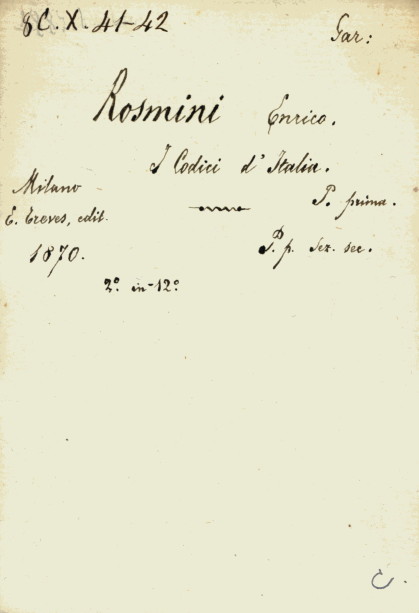 8C. X. 41-42
Gar:
Rosmini Enrico.
I Codici d'Italia.
Milano
P. prima.
E. Treves, edit.
P. p. Sez. sec.
1870.
2° in-12°
C.